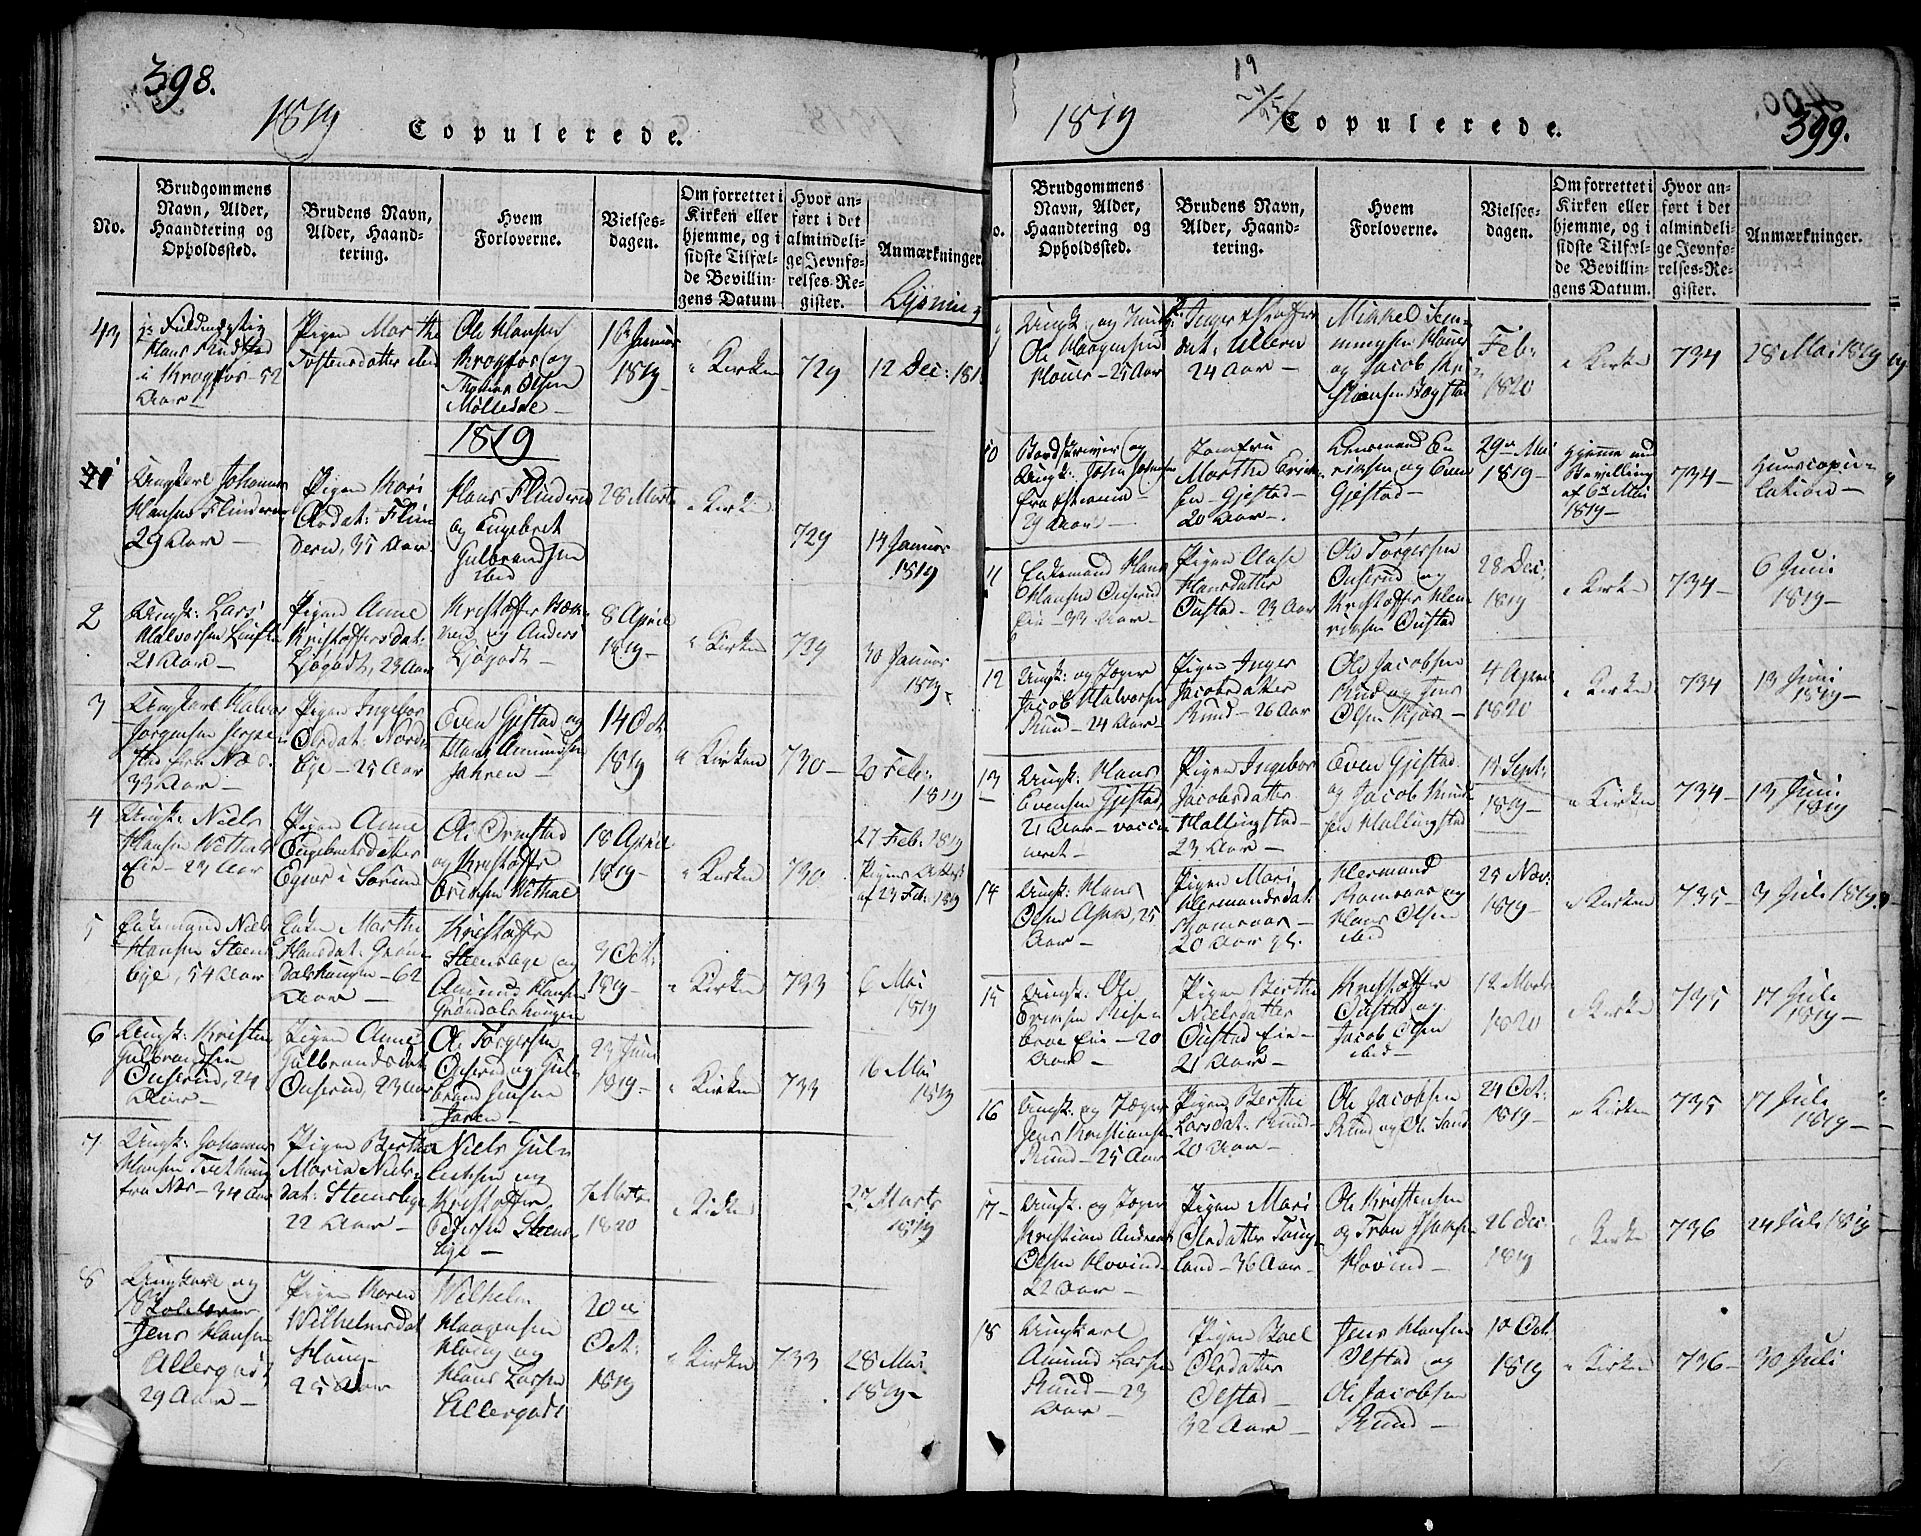 398.
1819
Copulerede.
No.
Brudgommens
Navn, Alder,
Haandtering og
Opholdssted.
Brudens Navn,
Alder, Haand-
tering.
Hvem
Forloverne.
Vielses-
dagen.
Om forrettet i
Kirken eller
hjemme, og i
sidste Tilfæl-
de Bevillin-
gens Datum
Hvor an-
ført i det
almindeli-
ge Jevnfø-
relses-Re-
gister.
Anmærkninger.
43
i Krogfos - 52
Aar -
Pigen Marthe
Tostensdatter
Ole Hansen
Krogfos og
Olsen
1819 -
Kirken
729
12 Dec: 181
1819
1
Ungkarl Johannes
Hansen Flinderud
29 Aar -
Pigen Kari
Olsdat: Flin
derud, 35 Aar
Hans Flinderud
og Engebret
Gulbrandsen
ibid
28 Marts
Kirke
729
14 Januar
1819
2
Ungk: Lars
Halvorsen
21 Aar -
Pigen Anne
Kristoffersdat:
Ljøgodt, 23 Aar
Kristoffer
og Anders
Ljøgodt -
8 April
1819 -
Kirken
729
30 Januar
1819 -
3
Ungkarl Halvor
Jørgensen
stad fra Næs
33 Aar -
Pigen Ingebor
Olsdat: Nord
bye - 25 Aar
Even Gjestad og
Hans Amundsen
Jahren -
14 Oct
1819
Kirken
730 -
20 Feb:
1819
4
Ungk: Niels
Hansen Withal
Eie - 23 Aar
Pigen Anne
Engebretsdatter
Ole Ormstad
og Kristoffer
Eriksen Withal
18 April
1819 -
Kirken
730
27 Feb: 1819
Pigens Attest
af 23 Feb: 1819
5
Enkemand Niels
Hansen Steens
bye, 54 Aar
Enken Marthe
Hansdat: Grøn
dalshaugen - 62
Aar -
Kristoffer
Steensbye og
Amund Hansen
Grøndalshaugen
3 Oct:
1819 -
Kirken
733
6 Mai
1819
6
Ungk: Kristen
Gulbrandsen
Onsrud, 24
Aar -
Pigen Anne
Gulbrandsdat
Onsrud, 23 Aar
Ole Torgersen
Onsrud og Gul
brand Jensen
Jaren -
23 Juni
1819 -
Kirken
733
16 Mai
1819
7
Ungk: Johannes
Hansen
fra Næs - 34 Aar
Pigen Berthe
Maria Niels
dat: Steensbye
22 Aar -
Niels Gul
og
Kristoffer
Pedersen Steens
bye -
7 Marts
1820
Kirke
733
27 Marts
1819
8
Ungkarl og
Jens Hansen
Allergodt
29 Aar -
Pigen Maren
Wilhelmsdat
Haug -
25 Aar
Wilhelm
Haagensen
Haug og
Hans Larsen
Allergodt
20de
Oct:
1819
Kirken
733
28 Mai
1819 -
1819
19
24/25
Copulerede.
399.
o.
Brudgommens
Navn, Alder,
Haandtering og
Opholdssted.
Brudens Navn,
Alder, Haand-
tering.
Hvem
Forloverne.
Vielses-
dagen.
Om forrettet i
Kirken eller
hjemme, og i
sidste Tilfæl-
de Bevillin-
gens Datum.
Hvor an-
ført i det
almindeli-
ge Jevnfø-
relses-Re-
gister.
Anmærkninger.
9
Ungk: og
Ole Haagensen
Houer - 25 Aar
Inger Kristoffers
dat: Ulleren
24 Aar -
Mikkel Sem-
mingsen Houer
og Jacob Kri-
stiansen Bogstad
Feb:
1820
Kirke
734
28 Mai 1819
10
og
Ungk: John
29 Aar -
Jomfru
Marthe Erik
sen - Gjestad -
20 Aar -
Lensmand En
riksen og Even
Gjestad -
29de Mai
1819 -
Hjemme med
Bevilling
af 6te Mai
1819 -
734 -
Huuscopu-
lation -
11
Enkemand Hans
Hansen Onsrud
Eie - 33 Aar -
Pigen Aase
Hansdatter
Onstad - 23 Aar
Ole Torgersen
Onsrud og
Kristoffer Hen
riksen Onstad
28 Dec:
1819
Kirke
734 -
6 Juni
1819 -
12
Ungk: og Jæger
Jacob Halvorsen
Rund - 24 Aar -
Pigen Inger
Jacobsdatter
Rund - 26 Aar
Ole Jacobsen
Rund og Jens
Olsen Kjos -
4 April
1820
Kirke
734
13 Juni
1819 -
13
Ungk: Hans
Evensen Gjestad,
21 Aar - vacci
neret -
Pigen Ingebor
Jacobsdatter
Hallingstad -
23 Aar -
Even Gjestad
og Jacob Knud
sen Hallingstad
14 Sept:
1819 -
Kirken
734 -
13 Juni
1819
14
Ungk: Hans
Olsen Ask, 25
Aar -
Pigen Mari
Hermandsdat:
Romsaas -
20 Aar gl.
Hermand
Romsaas og
Hans Olsen
ibid
25 Nov:
1819 -
Kirken
735 -
3 Juli 1819
15
Ungk: Ole
Eriksen
Eie - 20
Aar -
Pigen Berthe
Nielsdatter
Onstad Eie -
21 Aar -
Kristoffer
Onstad og
Jacob Olsen
ibid -
12 Marts
1820
Kirke
735
17 Juli
1819 -
16
Ungk: og Jæger
Jens Kristiansen
Rund - 25 Aar
Pigen Berthe
Larsdat: Rund -
20 Aar -
Ole Jacobsen
Rund og Ole Sand
24 Oct:
1819 -
Kirken
735
17 Juli
1819 -
17 -
Ungk: og Jæger
Kristian Andreas
Olsen Hovind -
22 Aar -
Pigen Mari
Olsdatter Tang
land - 36 Aar -
Ole Kristensen
og Tron Isaksen
Hovind -
26 Dec:
1819
Kirke
736
24 Juli 1819
18
Ungkarl
Amund Larsen
Rund - 23
Aar -
Pigen Boel
Olsdatter
Olstad -
32 Aar -
Jens Hansen
Olstad og
Ole Jacobsen
Rund -
10 Oct
1819
Kirken
736 -
30 Juli